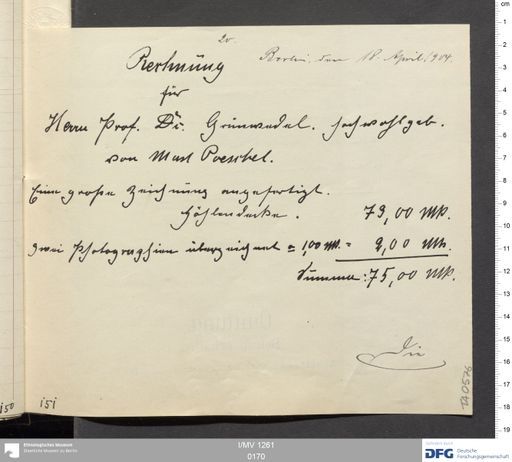 20.
Berlin, den 18. April. 1904.
Rechnung
für
Herrn Prof. Dr. Grünwedel. hochwohlgeb.
von Max Poeschel.
Eine große Zeichnung angefertigt.
Höhlendecke. 73,00 Mk.
Zwei Photographien überzeichnet à 1,00 M. = 2,00 Mk.
Summa: 75,00 Mk.
Die
TA 0576
150
151
Ethnologisches Museum
Staatliche Museen zu Berlin
I/MV 1261
0170
DFG
Deutsche
Forschungsgemeinschaft
cm
1
2
3
4
5
6
7
8
9
10
11
12
13
14
15
16
17
18
19